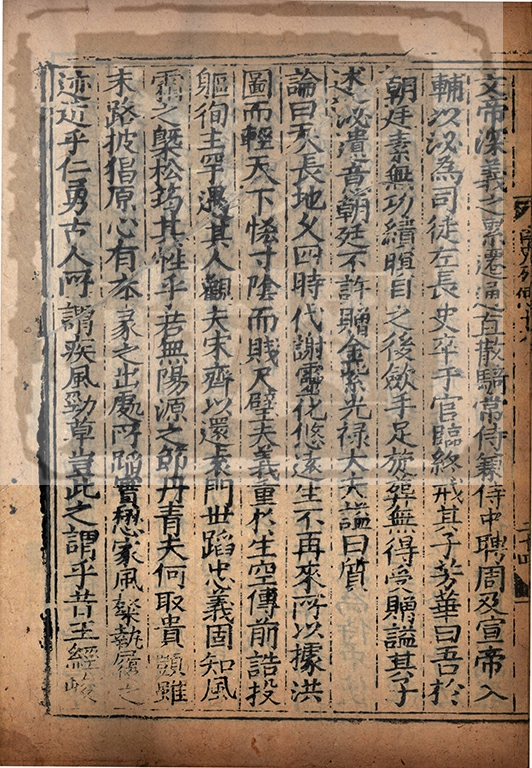 文帝深義之累遷通直散騎常侍兼侍中聘周及宣帝入
輔以泌為司徒左長史卒于官臨終戒其子芳華曰吾於
朝廷素無功績瞑目之後歛手足旋葬無得受贈謚其子
述泌遺意朝廷不許贈金紫光禄大夫謚曰質
論曰天長地久四時代謝靈化悠遠生不再來所以據洪
圖而輕天下惜寸陰而賤尺璧夫義重於生空傳前誥投
軀徇主罕遇其人觀夫宋齊以還袁門世蹈忠義固知風
霜之槩松筠其性乎若無陽源之節丹青夫何取貴顗雖
末路披猖原心有本彖之出處所蹈實懋家風粲執履之
迹近乎仁勇古人所謂疾風勁草豈此之謂乎昔王經峻